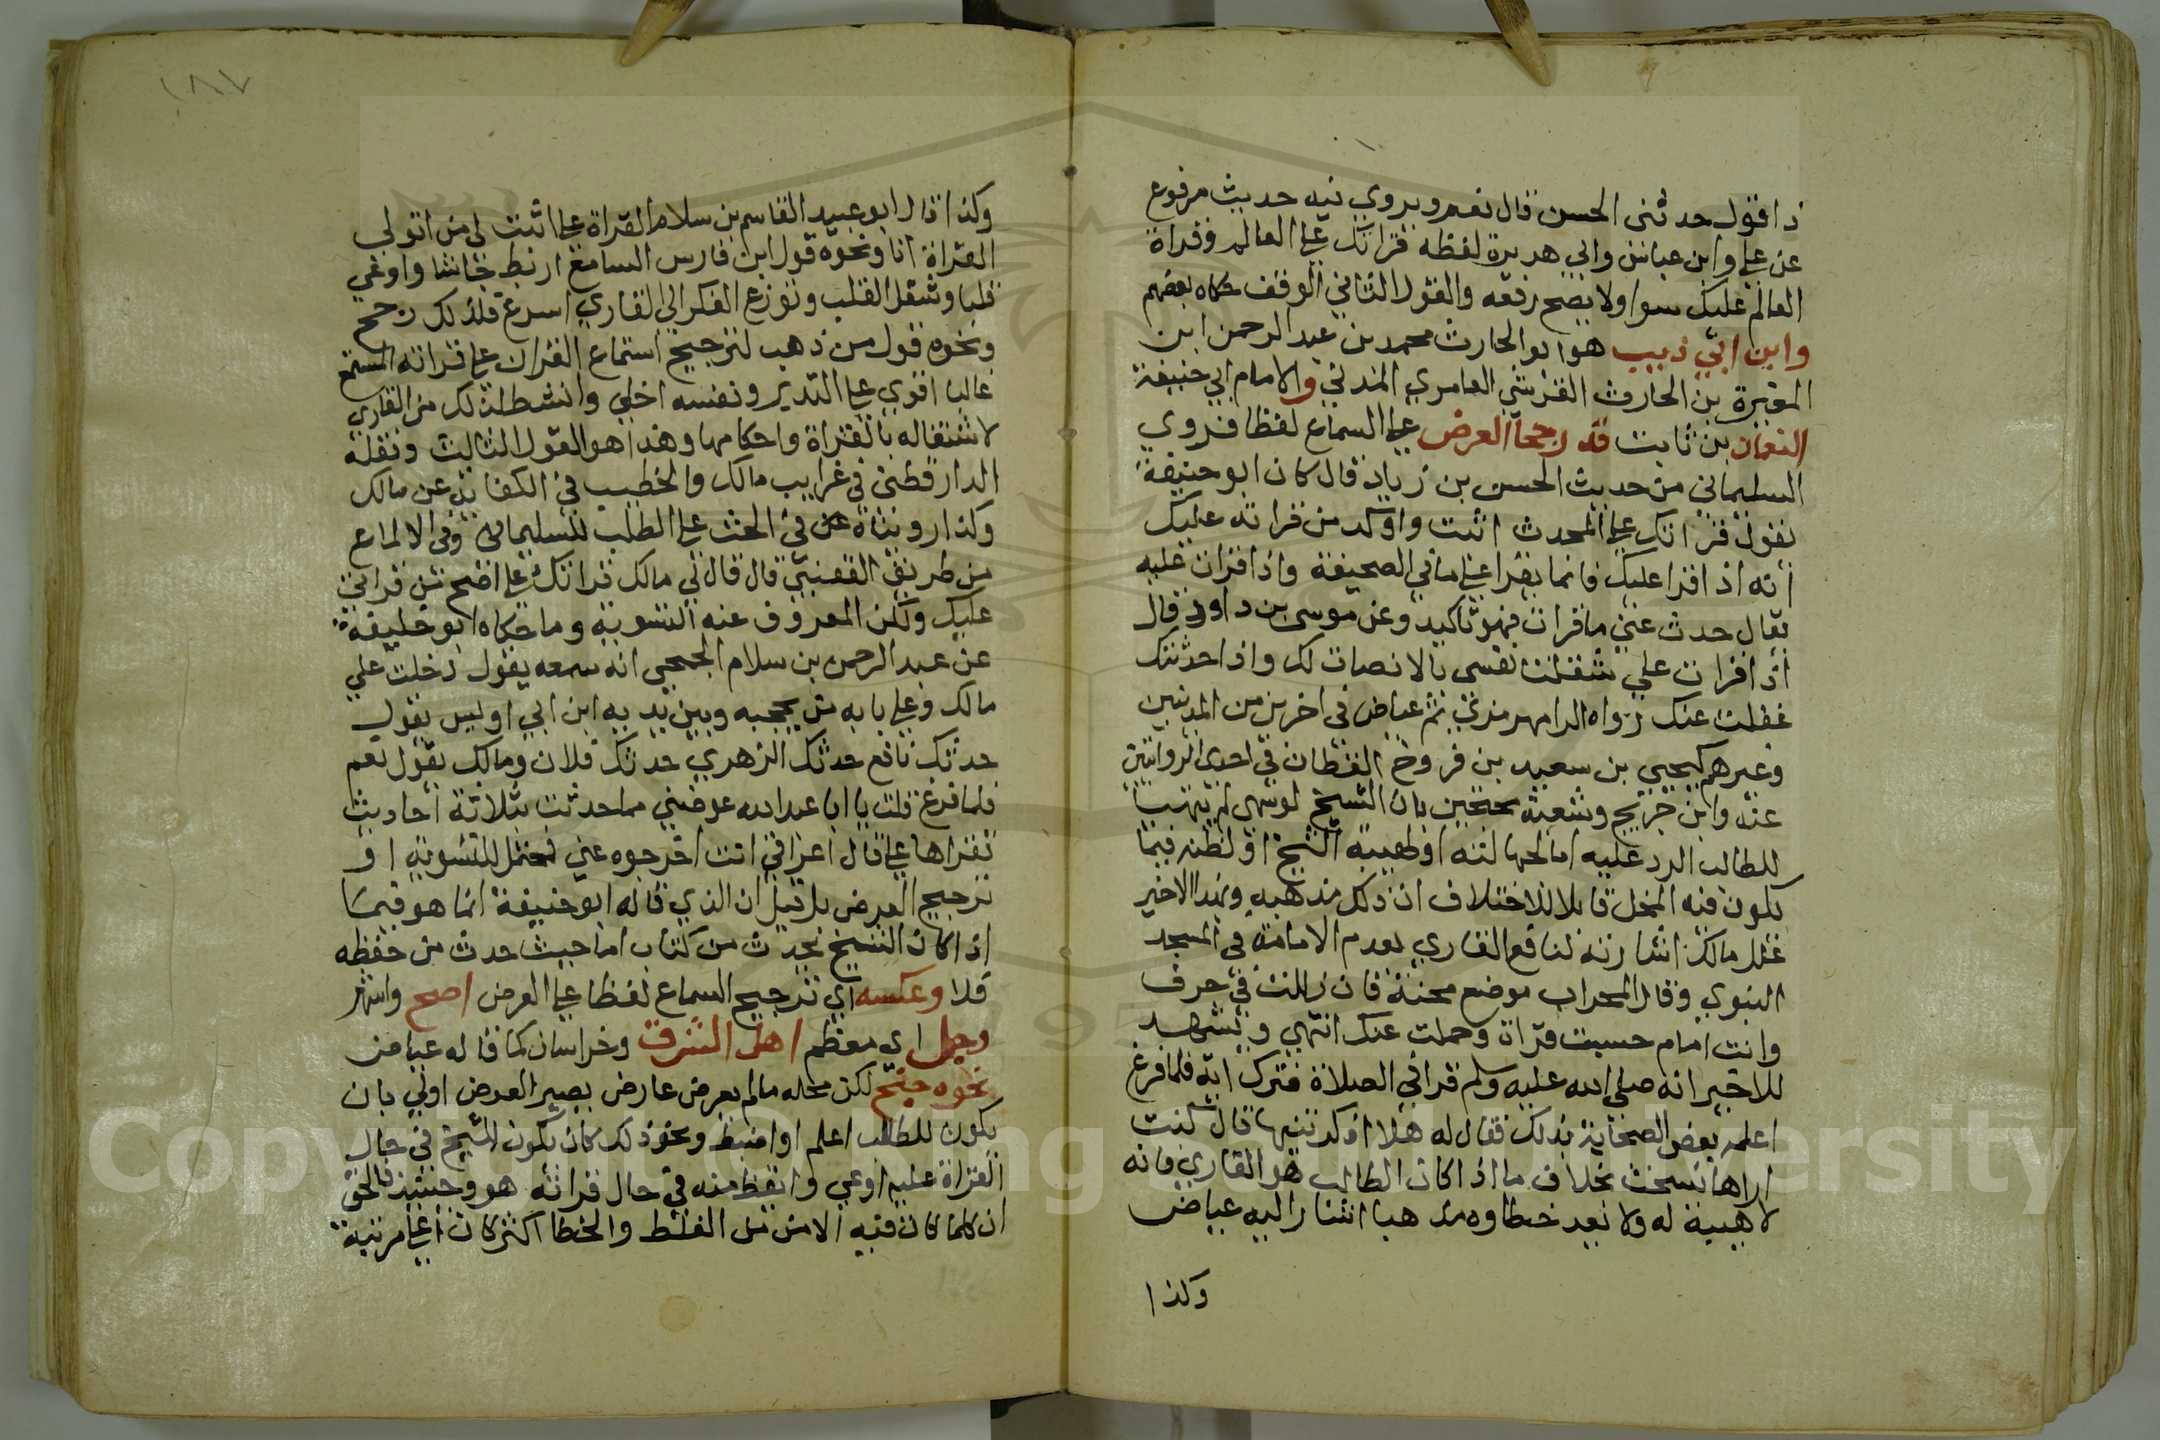 ذا فاقول حدثنى الحسن قال نعم ويروي فيه حديث مرفوع
عن علي وابن عباس وابي هريرة لفظه قراتك على العالم وقراة
العالم عليك سوا ولا يصح رفعه والقول الثاني الوقف حكاه بعضهم
وابن ابي ذييب هو ابو الحارث محمد بن عبد الرحمن ابن
المغيرة بن الحارث القرشي العامري المدني والامام ابي حنيفة
النعمان بن ثابت قد رجحا العرض على السماع لفظا فروي
السليماني من حديث الحسن بن زياد قال كان ابو حنيفة
يقول قراتك على المحدث اثبت واوكد من قراته عليك
انه اذا قرا عليك فانما يقرا على ما في الصحيفة واذا قرات عليه
يقال حدث عني ما قرات فهو تاكيد وعن موسى بن داود قال
اذا قرات علي شغلت نفسى بالانصات لك واذا حدثتك
غفلت عنك رواه الرامهرمزي ثم عياض في اخرين من المدنيين
وغيرهم كيحيي بن سعيد بن فروخ القطان في احدى الروايتين
عنه وابن جريج وشعبة محتجين بان الشيخ لو سهى لم يتهيا
للطالب الرد عليه اما لجهالته او لهيبة الشيخ او لظنه فيما
يكون فيه المحل قابلا للاختلاف ان ذلك مذهبه وبهذا الاخير
علل مالك اشارته لنافع القاري بعدم الامامة في المسجد
النبوي وقال المحراب موضع محنة فان زللت في حرف
وانت امام حسبت قراة وحملت عنك انتهي ويشهد
للاخير انه صلى الله عليه وسلم قرا في الصلاة فترك اية فلما فرغ
اعلمه بعض الصحابة بذلك فقال له هلا اذكرتنيها قال كنت
اراها نسخت بخلاف ما اذا كان الطالب هو القاري فانه
لا هيبة له ولا يعد خطاوه مذهبا اشار اليه عياض
وكذا
١٨٧
وكذا قال ابو عبيد القاسم بن سلام القراة علي اثبت لي من اتولي
القراة انا ونحوه قول ابن فارس السامع اربط جاشا واوعي
قلبا وشغل القلب وتوزع الفكر الى القاري اسرع فلذلك رجح
ونحوه قول من ذهب لترجيح استماع القران على قراته المستمع
غالبا اقوي على التدبر ونفسه اخلي وانشط لذلك من القاري
لاشتغاله بالقراة واحكامها وهذا هو القول الثالث ونقله
الدارقطني في غرايب مالك والخطيب في الكفاية عن مالك
وكذا رويناه عنه في الحث على الطلب للسليماني وفي الالماع
من طريق القعنبي قال قال لي مالك قراتك علي اصح من قراتي
عليك ولكن المعروف عنه التسوية وما حكاه ابو خليفة
عن عبد الرحمن بن سلام الجمحي انه سمعه يقول دخلت علي
مالك وعلي بابه من يحجبه وبين يديه ابن ابي اويس يقول
حدثك نافع حدثك الزهري حدثك فلان ومالك يقول نعم
فلما فرغ قلت يا ابا عبد الله عوضني مما حدثت بثلاثة احاديث
تقراها علي قال اعراقي انت اخرجوه عني فمحتمل للتسوية او
ترجيح العرض بل قيل ان الذي قاله ابو حنيفة انما هو فيما
اذا كان الشيخ يحدث من كتاب اما حيث حدث من حفظه
فلا وعكسه اي ترجيح السماع لفظا على العرض اصح واشهر
وجل اي معظم اهل الشرق وخراسان كما قاله عياض
نحوه جنح لكن محله ما لم يعرض عارض يصير العرض اولي بان
يكون للطالب اعلم او اضبط ونحو ذلك كان يكون الشيخ في حال
القراة عليه اوعي وايقظ منه في حال قراته هو وحينيذ فالحق
ان كلما كان فيه الامن من الغلط والخطا اكثر كان اعلي مرتبة
Copyright © King Saud University
1957